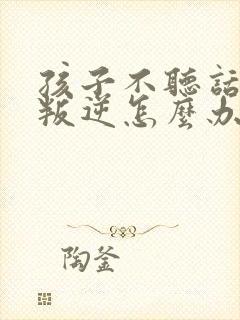 孩子不聽話
叛逆怎麼办
陶釜